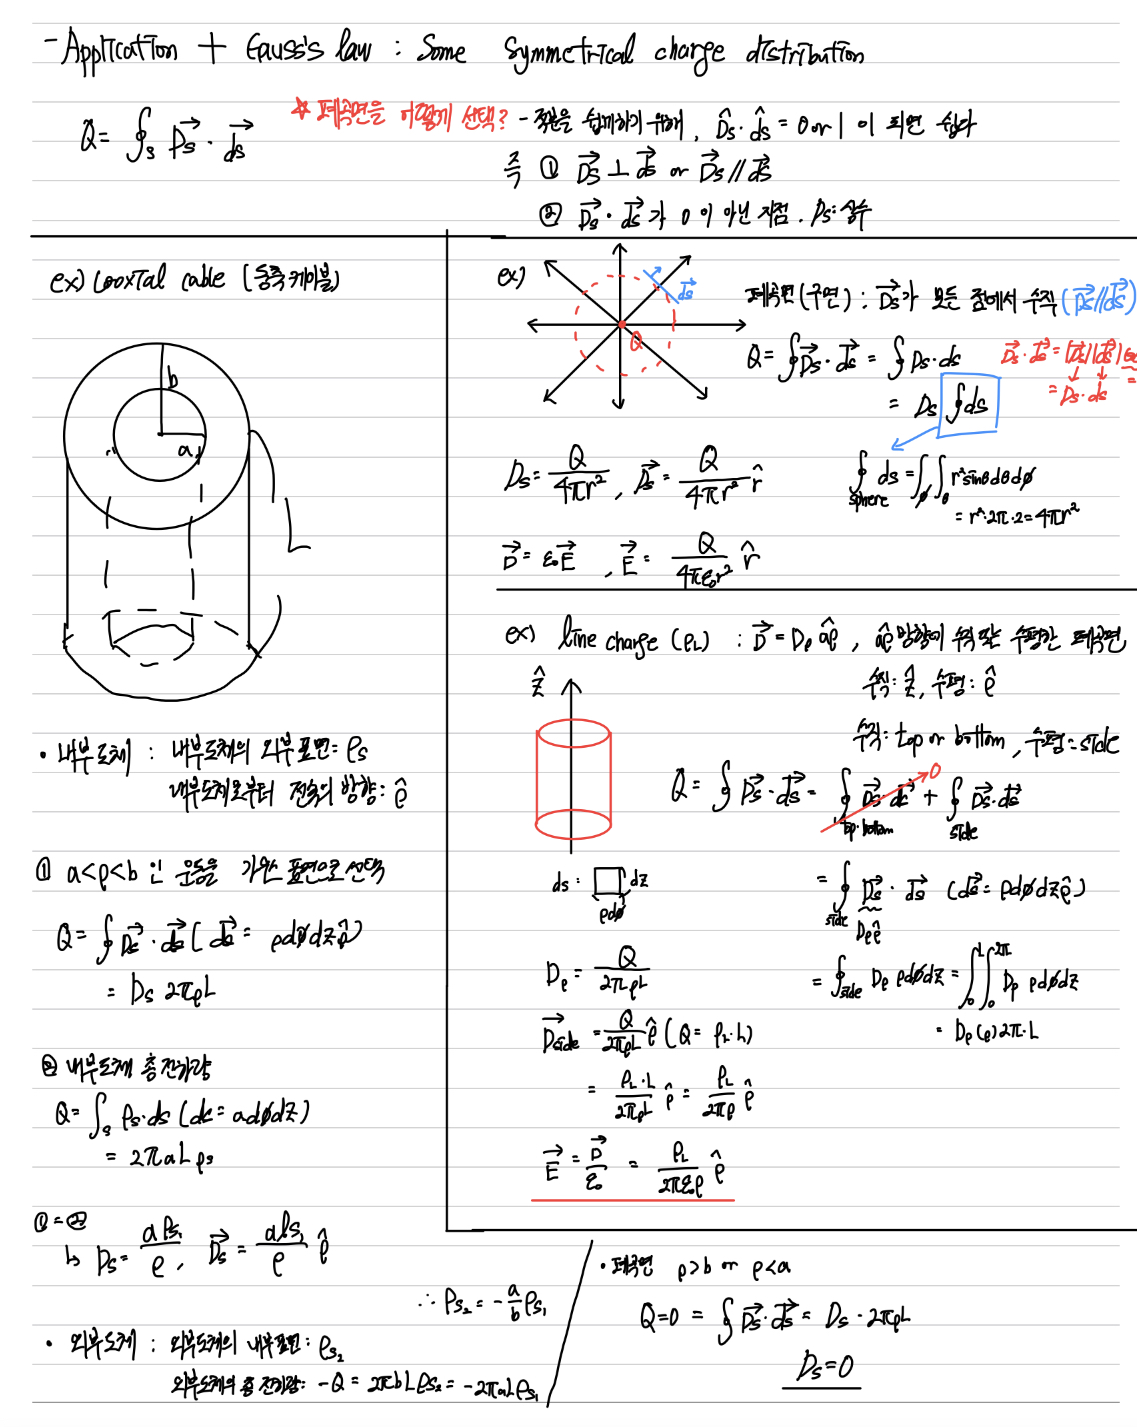 - Application + Gauss's law : Some symmetrical charge distribution
Q = ∮s Ds · ds
☆ 폐곡면을 어떻게 선택? - 적분을 쉽게하기 위해, D̂s · d̂s = 0 or 1 이 되면 쉽다
즉 ① Ds ⊥ ds or Ds // ds
② Ds · ds 가 0 이 아닌 지점. Ds: 상수
ex) Cooxial cable (동축케이블)
b
a
L
• 내부도체 : 내부도체의 외부표면: ρs
내부도체로부터 전속의 방향: ρ̂
① a<ρ<b 인 원통을 가우스 표면으로 선택
Q = ∮ Ds · ds (ds = ρdϕdz ρ̂)
= Ds 2πρL
② 내부도체 총 전하량
Q = ∫s ρs·ds (ds = adϕdz)
= 2πaL ρs
① = ②
↳ Ds = aρs₁/ρ, Ds = aρs₁/ρ ρ̂
• 외부도체 : 외부도체의 내부표면: ρs₂
외부도체의 총 전하량: -Q = 2πbLρs₂ = -2πaLρs₁
∴ ρs₂ = -a/b ρs₁
ex)
Q
ds
폐곡면(구면) : Ds가 모든 점에서 수직 (Ds//ds)
Q = ∮ Ds · ds = ∮ Ds·ds
= Ds ∮ds
Ds · ds = |Ds||ds|
= Ds · ds
∮sphere ds = ∫ϕ∫θ r²sinθdθdϕ
= r²·2π·2 = 4πr²
Ds = Q/4πr², Ds = Q/4πr² r̂
D = ε₀E, E = Q/4πε₀r² r̂
ex) line charge (ρL) : D = Dρ âρ, âρ방향이 수직 또는 수평한 폐곡면
수직: ẑ, 수평: ρ̂
수직: top or bottom, 수평 = side
ẑ
Q = ∮ Ds · ds = ∮top·bottom Ds · ds → 0 + ∮side Ds · ds
ds: dz
ρdϕ
= ∮side Ds · ds (ds = ρdϕdzρ̂)
Dρρ̂
= ∮side Dρ ρdϕdz = ∫₀ᴸ∫₀²π Dρ ρdϕdz
= Dρ(ρ)2π·L
Dρ = Q/2πρL
Dside = Q/2πρL ρ̂ (Q = ρL·L)
= ρL·L/2πρL ρ̂ = ρL/2πρ ρ̂
E = D/ε₀ = ρL/2πε₀ρ ρ̂
• 폐곡면 ρ>b or ρ<a
Q=0 = ∮ Ds · ds = Ds · 2πρL
Ds = 0